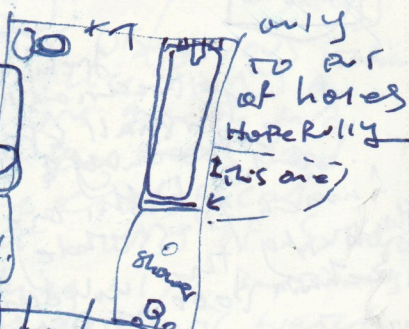 only
to put
at holes
Hopefully
this one)
shower